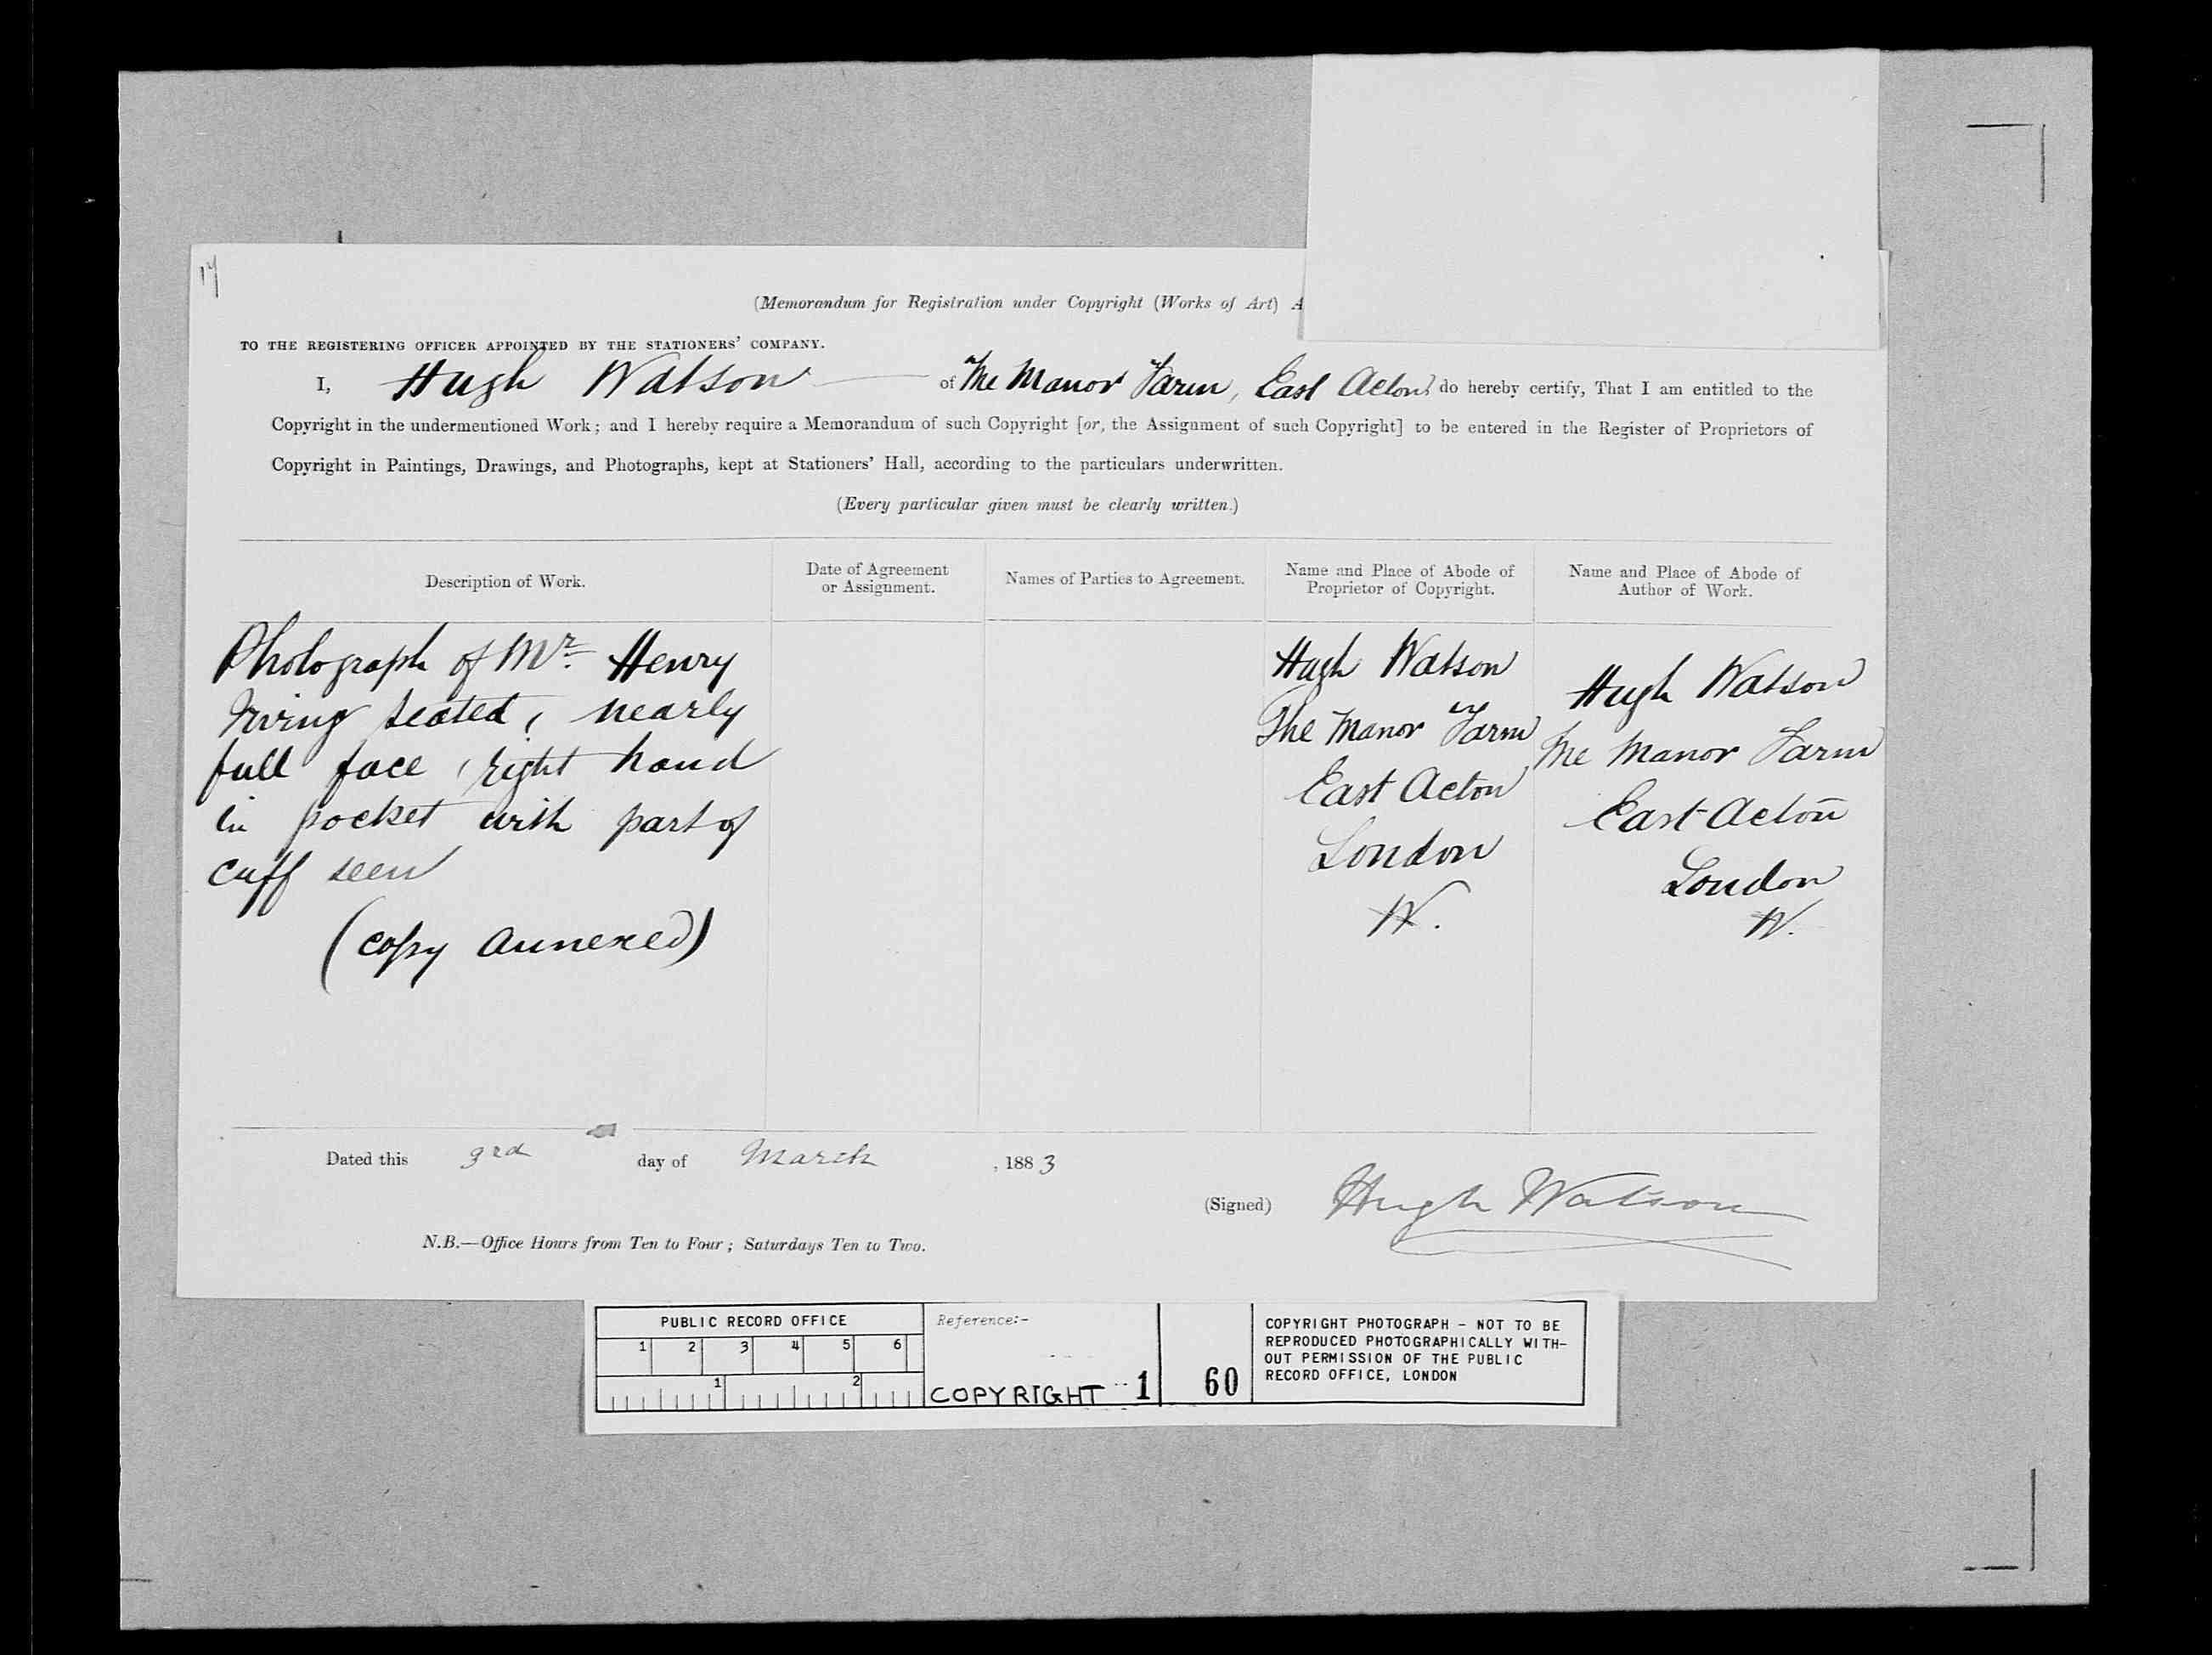 17
(Memorandum for Registration under Copyright (Works of Art) A
TO THE REGISTERING OFFICER APPOINTED BY THE STATIONERS' COMPANY.
I, Hugh Watson of The Manor Farm, East Acton, do hereby certify, That I am entitled to the
Copyright in the undermentioned Work; and I hereby require a Memorandum of such Copyright [or, the Assignment of such Copyright] to be entered in the Register of Proprietors of
Copyright in Paintings, Drawings, and Photographs, kept at Stationers' Hall, according to the particulars underwritten.
(Every particular given must be clearly written.)
Description of Work.
Photograph of Mr. Henry
Irving seated, nearly
full face, right hand
in pocket with part of
cuff seen
(copy annexed)
Date of Agreement
or Assignment.
Names of Parties to Agreement.
Name and Place of Abode of
Proprietor of Copyright.
Hugh Watson
The Manor Farm
East Acton
London
W.
Name and Place of Abode of
Author of Work.
Hugh Watson
The Manor Farm
East Acton
London
W.
Dated this 3rd day of March, 1883
(Signed) Hugh Watson
N.B.—Office Hours from Ten to Four; Saturdays Ten to Two.
PUBLIC RECORD OFFICE
1 2 3 4 5 6
1 2
Reference:-
COPYRIGHT 1 60
COPYRIGHT PHOTOGRAPH - NOT TO BE
REPRODUCED PHOTOGRAPHICALLY WITH-
OUT PERMISSION OF THE PUBLIC
RECORD OFFICE, LONDON